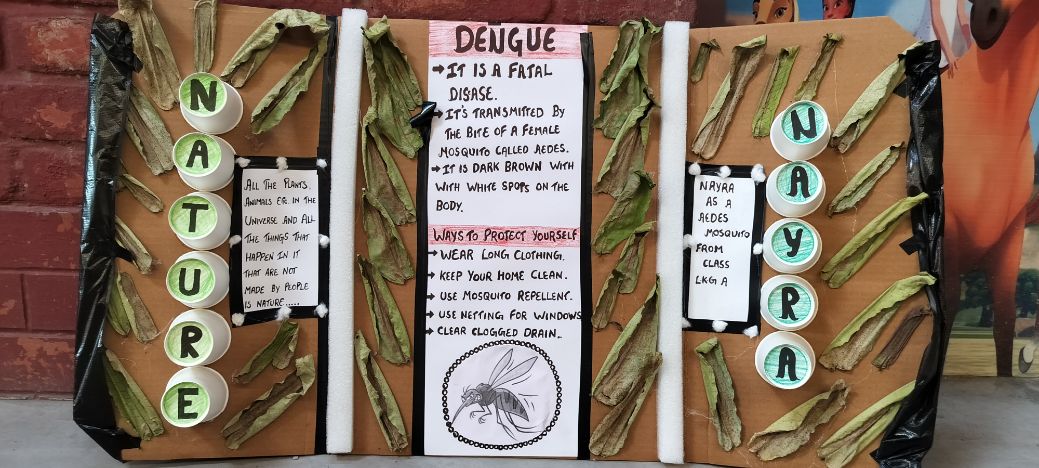 NATURE
ALL THE PLANTS,
ANIMALS EG. IN THE
UNIVERSE AND ALL
THE THINGS THAT
HAPPEN IN IT
THAT ARE NOT
MADE BY PEOPLE
IS NATURE.....
DENGUE
→ IT IS A FATAL
DISEASE.
→ IT'S TRANSMITTED BY
THE BITE OF A FEMALE
MOSQUITO CALLED AEDES.
→ IT IS DARK BROWN WITH
WITH WHITE SPOTS ON THE
BODY.
WAYS TO PROTECT YOURSELF
→ WEAR LONG CLOTHING.
→ KEEP YOUR HOME CLEAN.
→ USE MOSQUITO REPELLENT.
→ USE NETTING FOR WINDOWS
→ CLEAR CLOGGED DRAIN..
NAYRA
AS A
AEDES
MOSQUITO
FROM
CLASS
LKG A
NAYRA